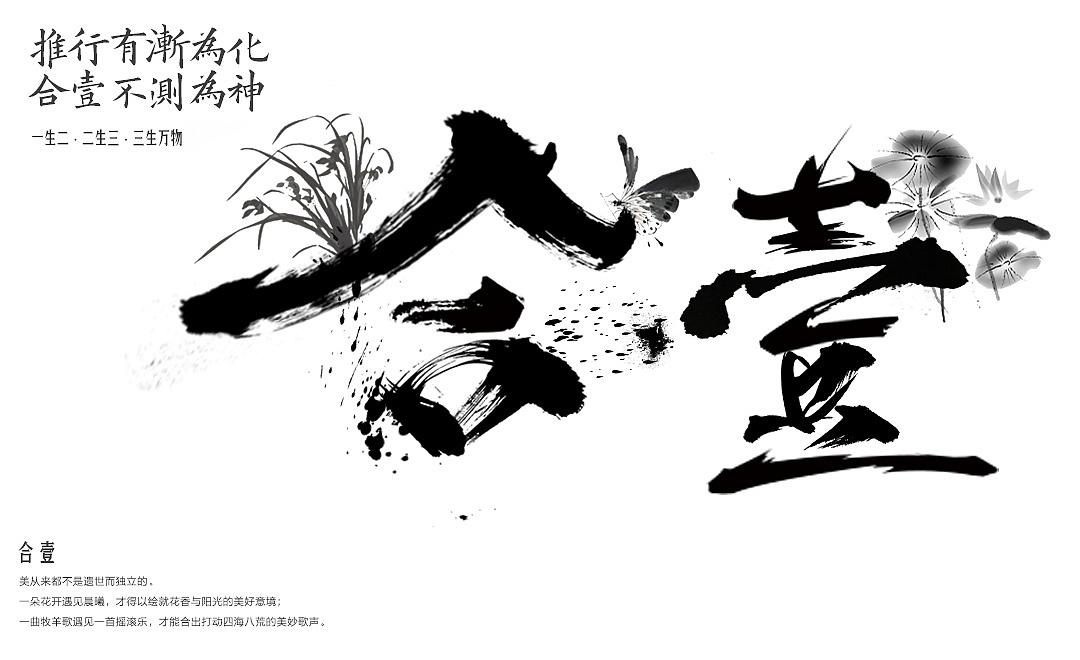 推行有漸為化
合壹不測為神
一生二 · 二生三 · 三生万物
合壹
合壹
美从来都不是遗世而独立的。
一朵花开遇见晨曦，才得以绘就花香与阳光的美好意境；
一曲牧羊歌遇见一首摇滚乐，才能合出打动四海八荒的美妙歌声。